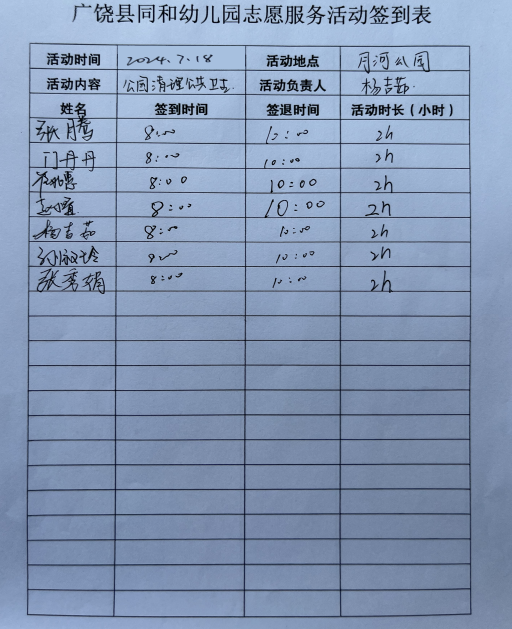 广饶县同和幼儿园志愿服务活动签到表
活动时间 2024.7.18 活动地点 月河公园
活动内容 公园清理公共卫生 活动负责人 杨吉茹
姓名 签到时间 签退时间 活动时长（小时）
张腾 8:00 10:00 2h
门丹丹 8:00 10:00 2h
8:00 10:00 2h
8:00 10:00 2h
杨吉茹 8:00 10:00 2h
8:00 10:00 2h
张秀娟 8:00 10:00 2h